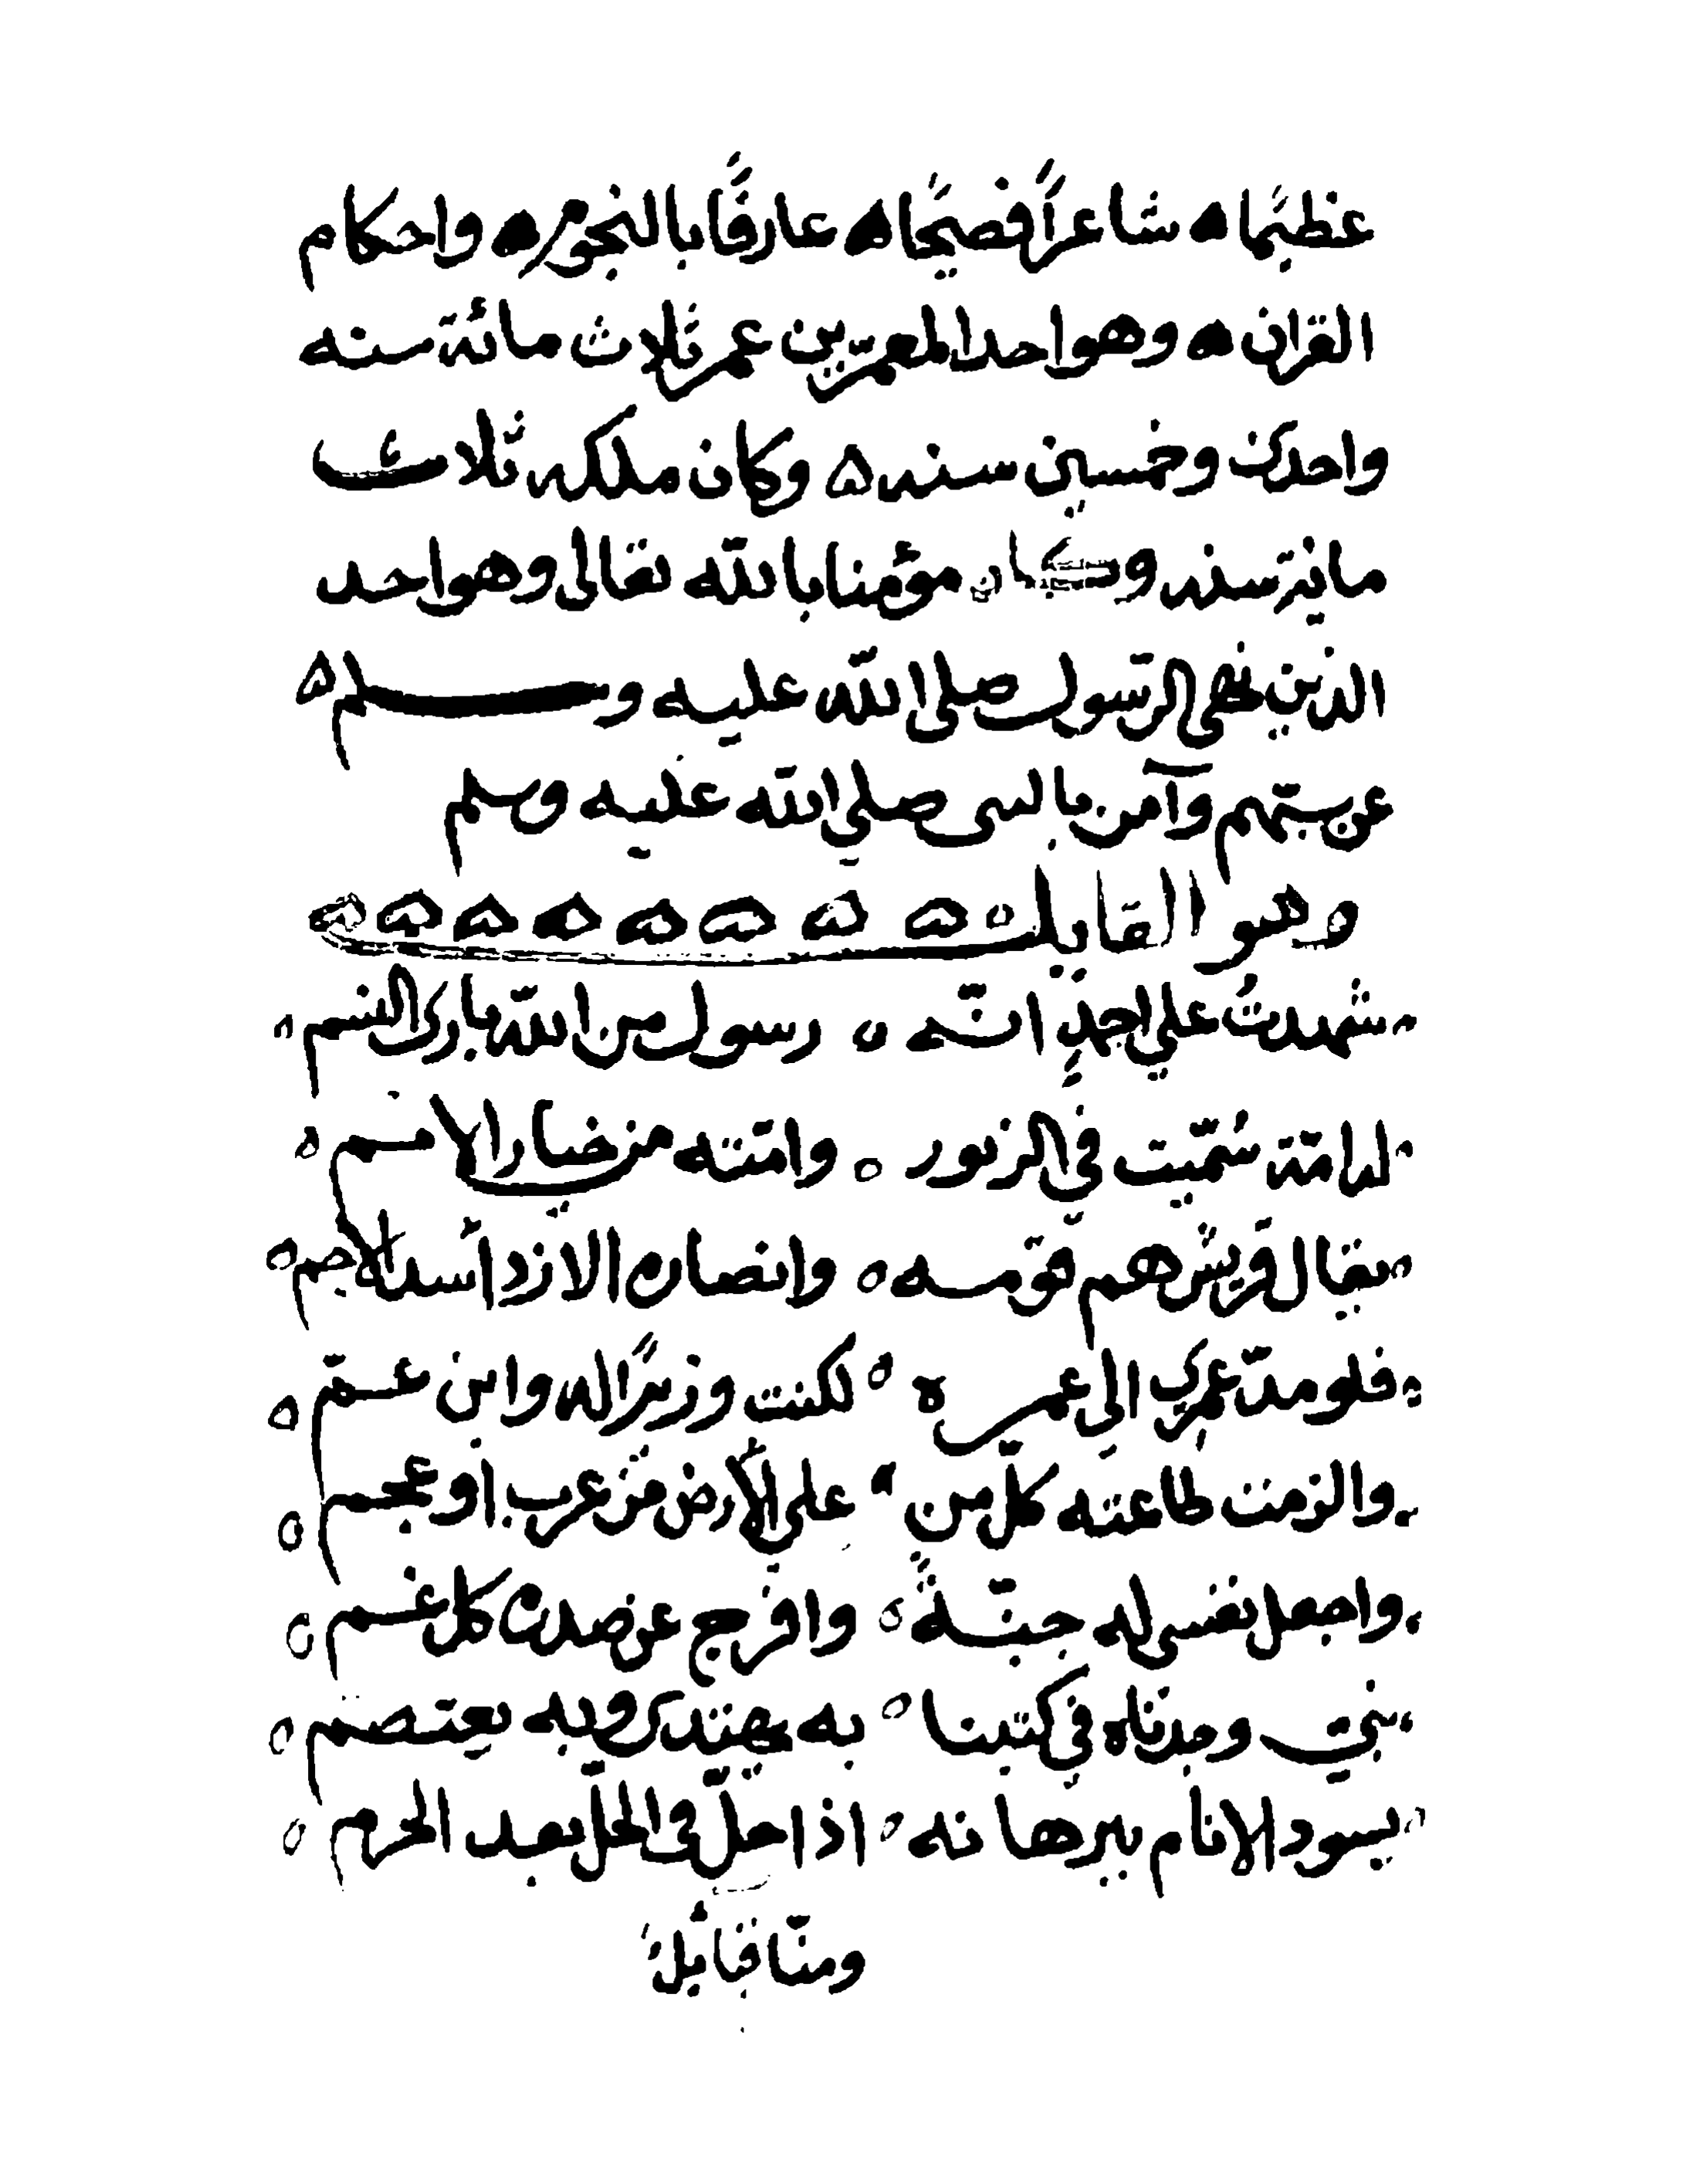 عظيمًا ه شاعرًا فصيحًا ه عارفًا بالنجوم ه واحكام
القران ه وهو احد المعمرين عمر ثلاث مائة سنه
واحدى وخمسين سنه ه وكان ملكه ثلاث
مايتر سنه وكان مؤمنا بالله تعالى وهو احد
الذين الرسول صلى الله عليه وسلم ه
وآمن بالنبى صلي الله عليه وسلم
وهو القايل ه ه ه ه ه ه ه ه
شهدتُ علي احمدٍ انّه ه رسول من الله بارى النسم
له امّة سمّيت في الزبور ه وامّته من خيار الامم ه
يقال قريش هم قومه ه وانصاره الازد أسد الاجم ه
فلو مدّ عمرى الي عمره ه لكنت وزيرًا له وابن عم ه
والزمت طاعته كلّ من على الأرض من عرب أو عجم ه
واجعل نفسى له جنّةً ه وافرج عن صدره كل غم ه
نبيّ وجدناه في كتبنا ه به يهتدى وبه يعتصم ه
يسود الانام ببرهانه ه اذا حلّ فى الحلّ بعد الحرم ه
ومنّا قبايلُ